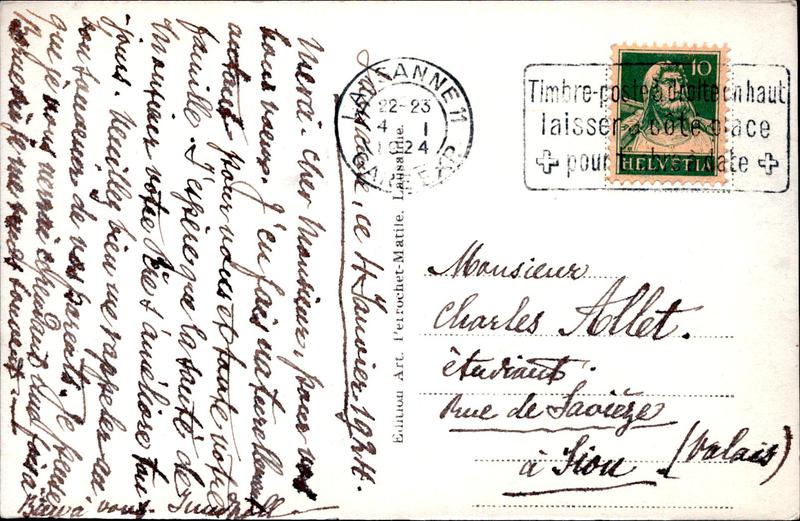 Lausanne, ce 4 Janvier 1924.
Merci - Cher Monsieur, pour vos
bons vœux. J'en fais naturellement
autant pour vous et toute votre
famille. J'espère que la santé de
Monsieur votre Père s'améliore
jours. Veuillez bien me rappeler au
souvenir de vos parents. Je pense
que je vous verrai
je me rends souvent
Bien à vous.
Edition Art. Perrochet-Matile, Lausanne.
LAUSANNE 11
22-23
4 I
1924
Timbre-poste à droite en haut
laisser à côté place
pour date
10
HELVETIA
Monsieur
Charles Allet.
étudiant.
Rue de Savièze
à Sion (Valais)